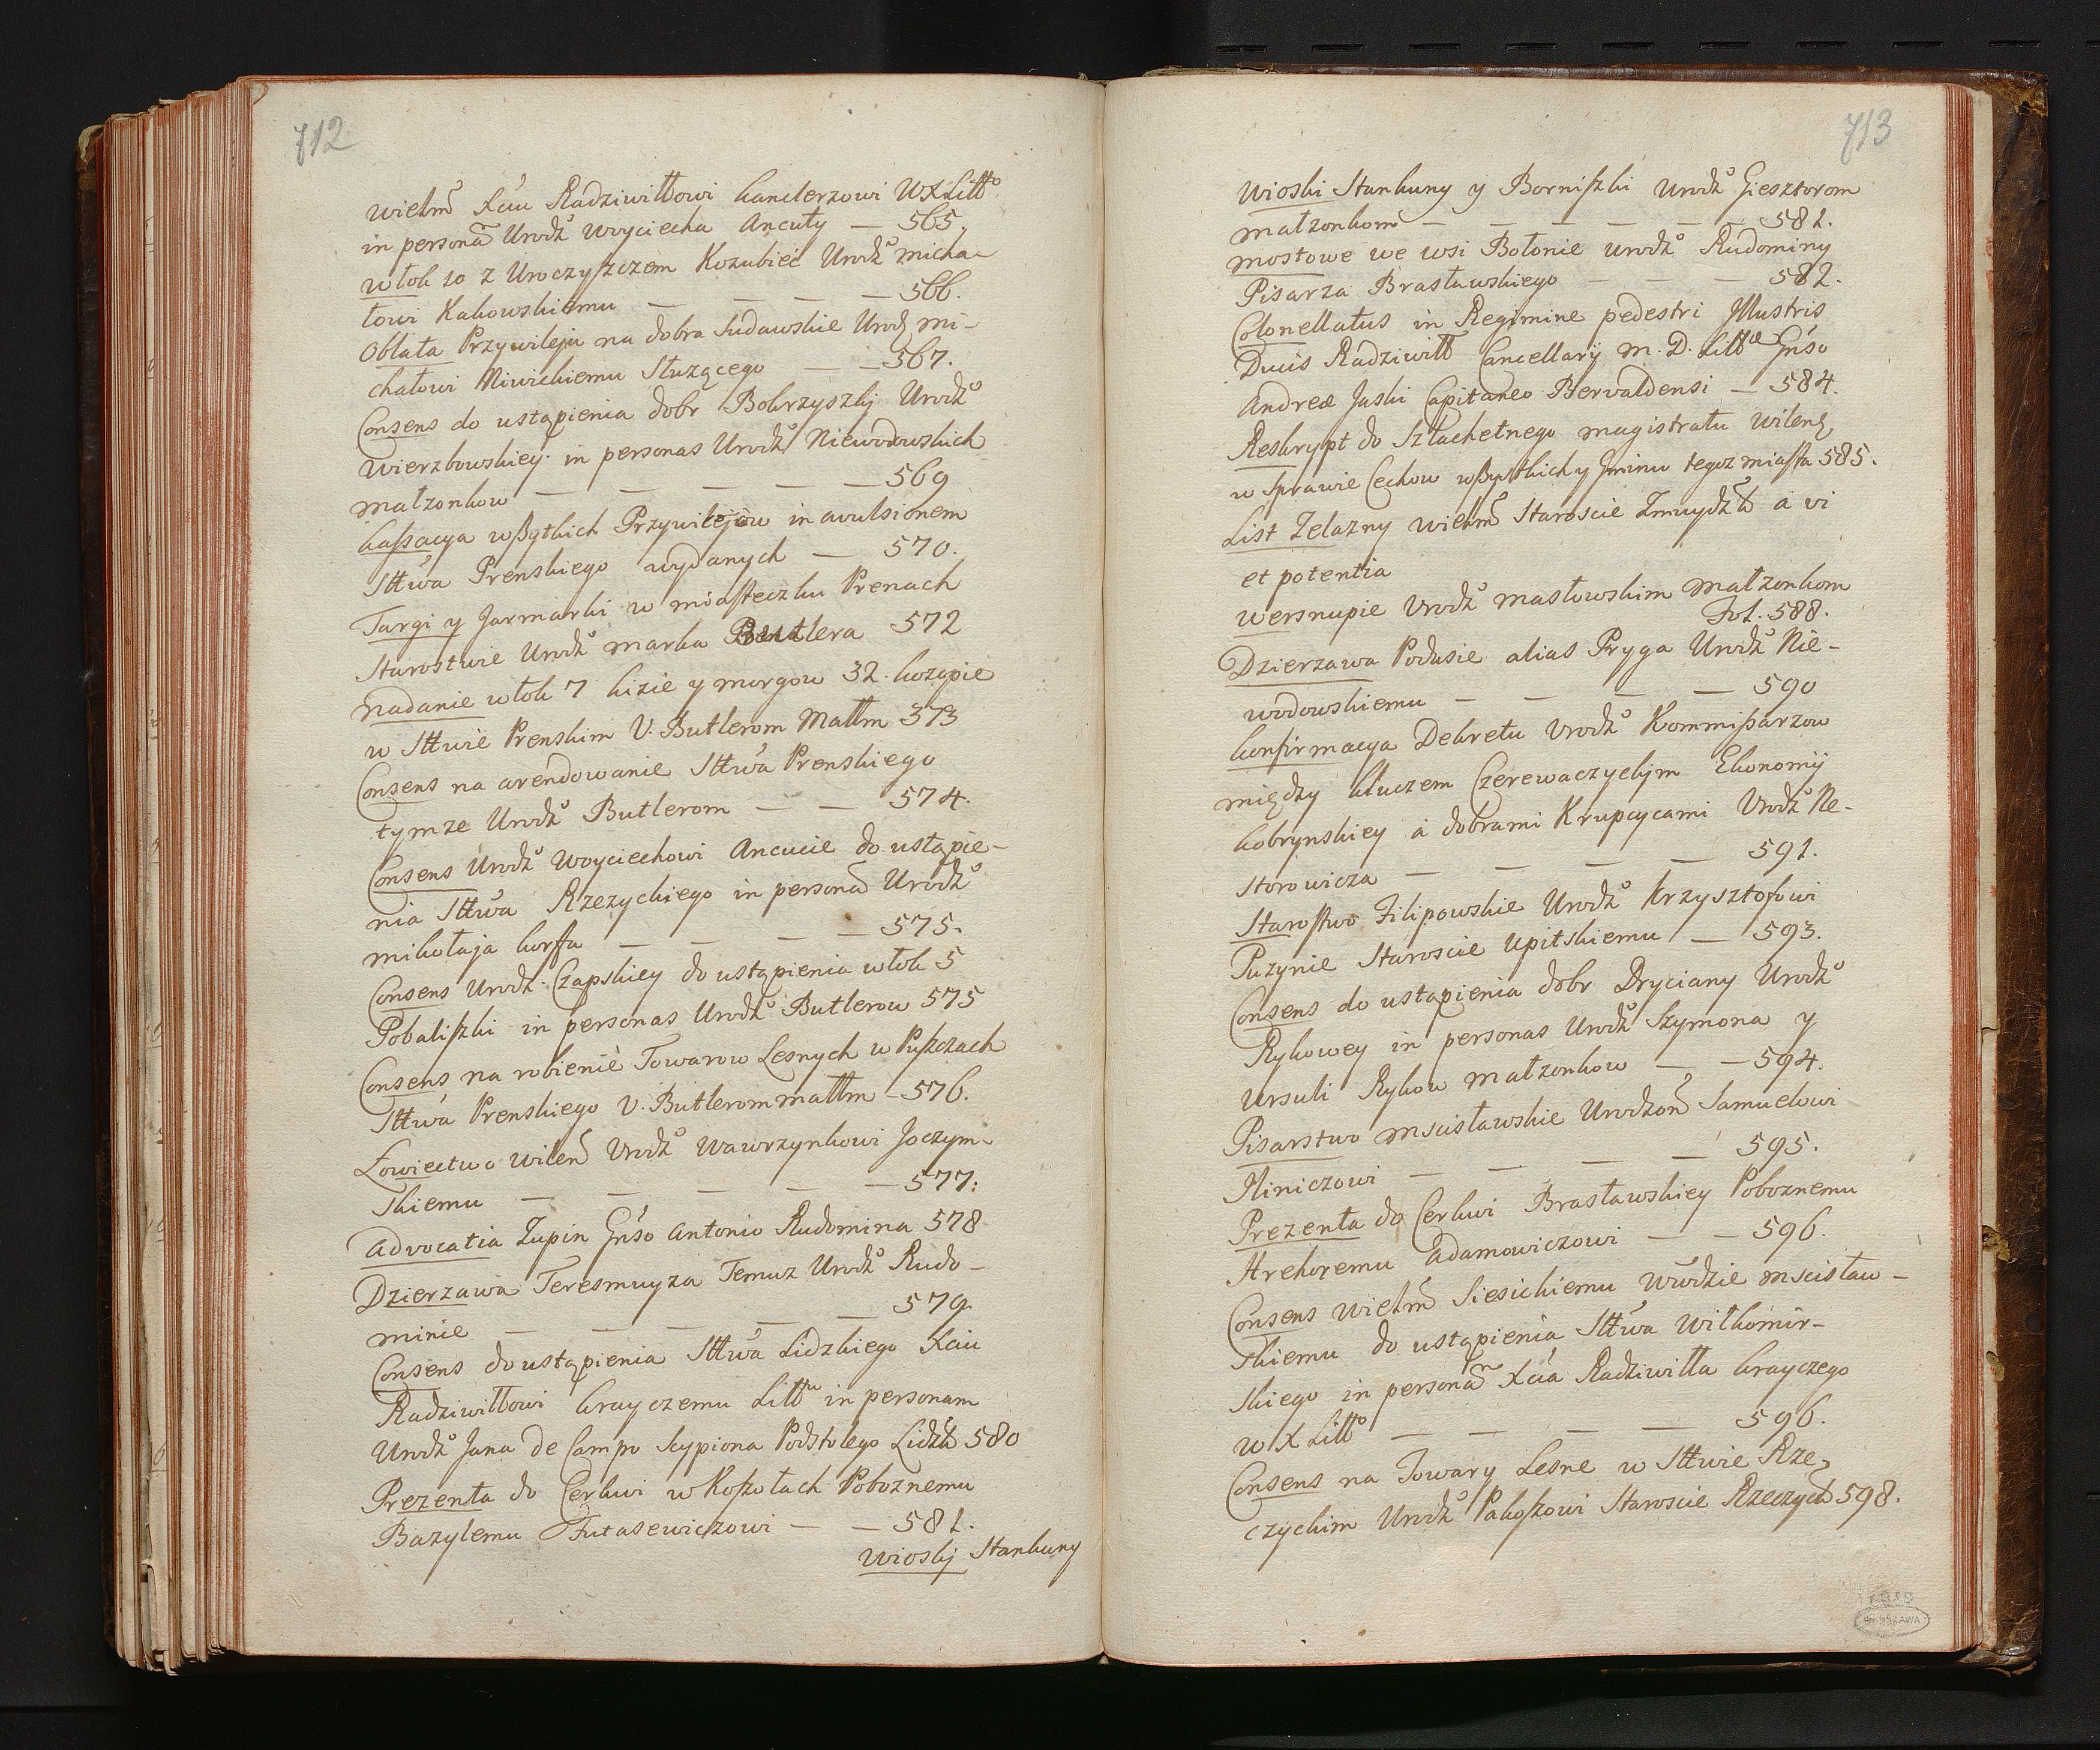 712
Wielm̃ Xću Radziwiłłowi Kanclerzowi WXLitto
in personã Urodzo Woyciecha Ancuty — 565.
Włok 10 z Uroczyszczem Kozubiec Urodzo Micha-
łowi Kakowskiemu — — — — 566.
Oblata Przywileju na dobra Sudawskie Urodz Mi-
chałowi Niwickiemu Służącego — — 567.
Consens do ustąpienia dobr Bobrzyszki Urodzo
Wierzbowskiey in personas Urodzo Niewodowskich
małzonkow — — — — — 569
Kassacya wszytkich Przywilejow in avulsionem
Sttwa Prenskiego wydanych — 570.
Targi y Jarmarki w miasteczku Prenach
Starostwie Urodzo Marka Butlera 572
Nadanie włok 7 kizie y morgow 32. kozapie
w Sttwie Prenskim U. Butlerom Małłm 573
Consens na arendowanie Sttwa Prenskiego
tymze Urodzo Butlerom — — 574.
Consens Urodzo Woyciechowi Ancucie do ustąpie-
nia Sttwa Rzezyckiego in personã Urodzo
Mikołaja Korffa — — — — 575.
Consens Urodz. Czapskiey do ustąpienia włok 5
Pobaliszki in personas Urodzo Butlerow 575
Consens na robienie Towarow Lesnych w Puszczach
Sttwa Prenskiego U. Butlerom małłm - 576.
Łowiectwo Wileñ Urodzo Wawrzynkowi Joczym-
skiemu — — — — — 577:
Advocatia Zupin Gñso Antonio Rudomina 578
Dzierzawa Teresmuyza Temuz Urodzo Rudo-
minie — — — — — 579
Consens do ustąpienia Sttwa Lidzkiego Xciu
Radziwiłłowi Krayczemu Litt in personam
Urodzo Jana de Campo Scypiona Podstolego Lidzk 580
Prezenta do Cerkwi w Koszołach Poboznemu
Bazylemu Jutasewiczowi — — 581.
Wioski Stankuny
713
Wioski Stankuny y Borniszki Urodzo Giesztorom
małzonkom — — — — — 581.
Mostowe we wsi Bołonie Urodzo Rudominy
Pisarza Brasławskiego — — — 582.
Colonellatus in Regimine pedestri Illustris
Ducis Radziwiłł Cancellarij M. D. Litt Gñso
Andreæ Jaski Capitaneo Bervaldensi — 584.
Reskrypt do Szlachetnego magistratu Wileń
w Sprawie Cechow wszystkich y Gminu tegoz miasta 585.
List Zelazny Wielm̃ Staroscie Zmuydzk à vi
et potentia
Wersnupie Urodzo Masłowskim małzonkom
Fol. 588.
Dzierzawa Podusie alias Pryga Urodzo Nie-
wodowskiemu — — — — 590
Konfirmacya Dekretu Urodzo Kommissarzow
między kluczem Czerewaczyckjm Ekonomij
Kobrynskiey à dobrami Krupczycami Urodzo Ne-
storowicza — — — — 591.
Starostwo Filipowskie Urodzo Krzysztofowi
Puzynie Staroscie Upitskiemu — 593.
Consens do ustąpienia dobr Dryciany Urodzo
Rykowey in personas Urodzo Szymona y
Ursuli Rykow małzonkow — — 594.
Pisarstwo Mscisławskie Urodzoñ Samuelowi
Hliniczowi — — — — 595.
Prezenta do Cerkwi Brasławskiey Poboznemu
Hrehoremu Adamowiczowi — — 596.
Consens Wielm̃ Siesickiemu Wwodzie Mscisław-
skiemu do ustąpienia Sttwa Wiłkomir-
skiego in personã Xcia Radziwiłła Krayczego
W X Litto — — — — 596.
Consens na Towary Lesne w Sttwie Rze-
czyckim Urodzo Pakoszowi Staroscie Rzeczyck 598.
AGAD
WARSZAWA